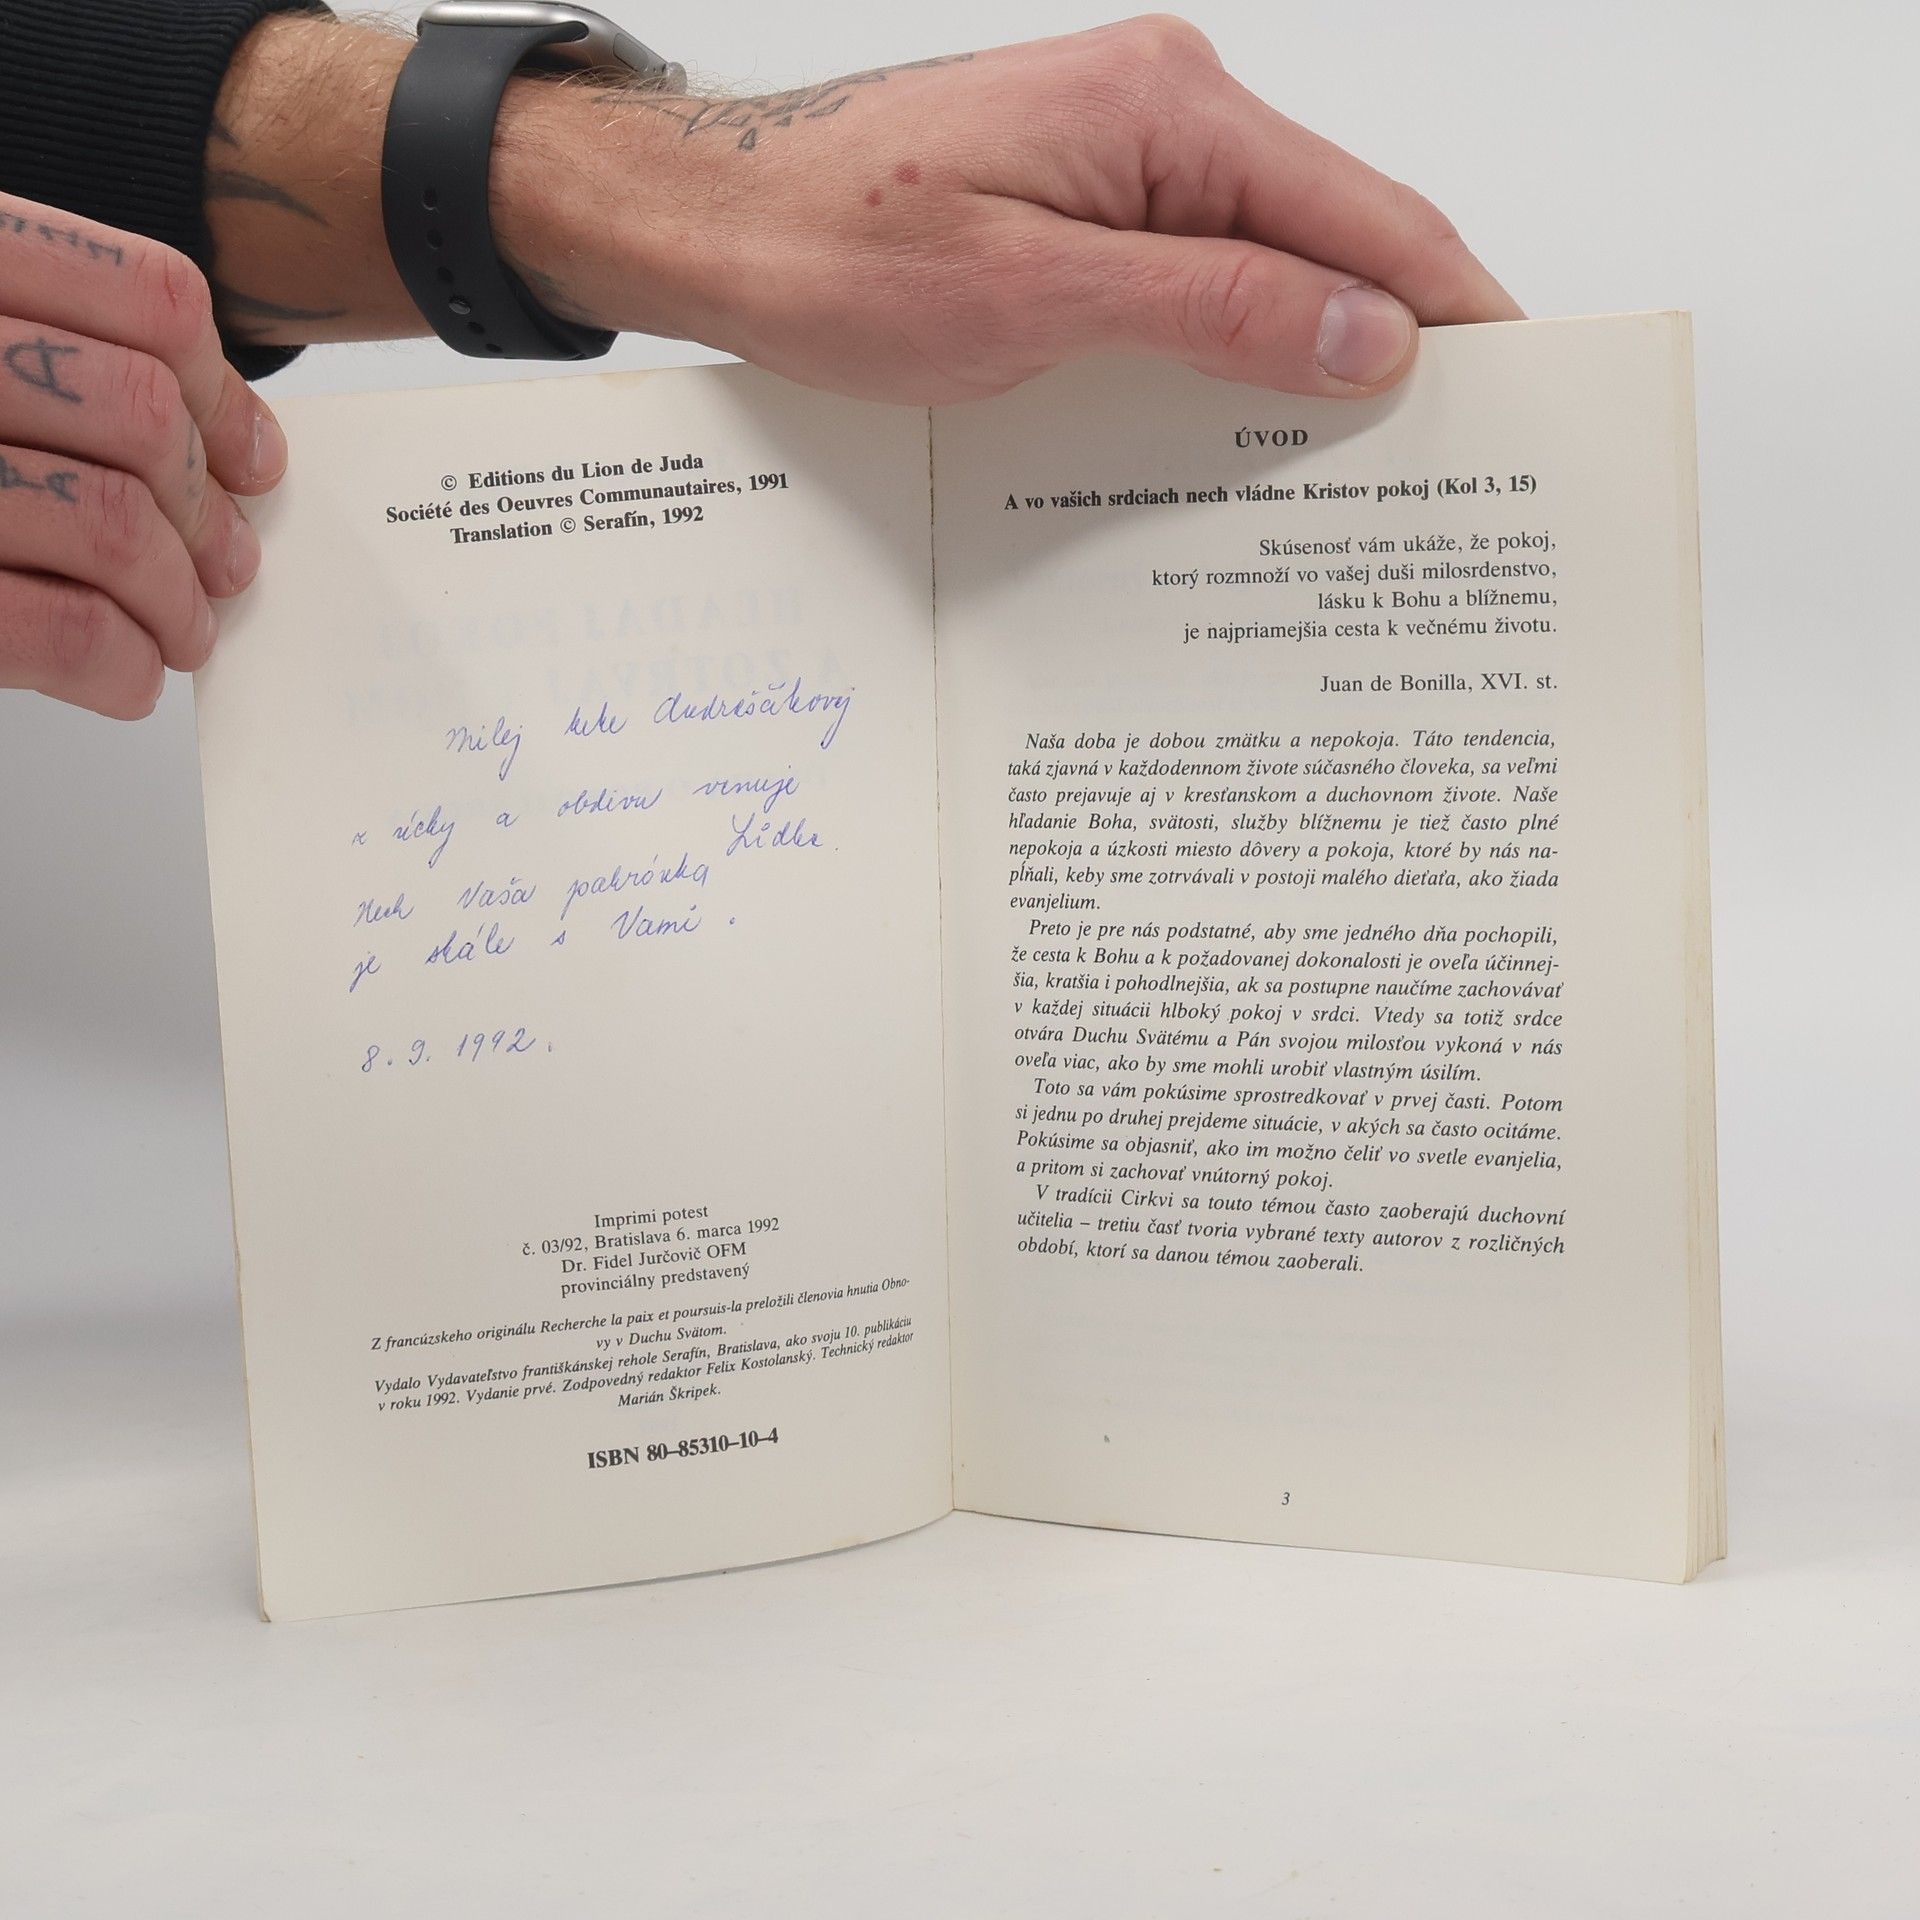 © Editions du Lion de Juda
Société des Oeuvres Communautaires, 1991
Translation © Serafín, 1992
Milej tete Andreščákovej
z úcty a obdivu venuje
Lidka.
Nech Vaša patrónka
je stále s Vami.
8. 9. 1992.
Imprimi potest
č. 03/92, Bratislava 6. marca 1992
Dr. Fidel Jurčovič OFM
provinciálny predstavený
Z francúzskeho originálu Recherche la paix et poursuis-la preložili členovia hnutia Obno-
vy v Duchu Svätom.
Vydalo Vydavateľstvo františkánskej rehole Serafín, Bratislava, ako svoju 10. publikáciu
v roku 1992. Vydanie prvé. Zodpovedný redaktor Felix Kostolanský. Technický redaktor
Marián Škripek.
ISBN 80–85310–10–4
ÚVOD
A vo vašich srdciach nech vládne Kristov pokoj (Kol 3, 15)
Skúsenosť vám ukáže, že pokoj,
ktorý rozmnoží vo vašej duši milosrdenstvo,
lásku k Bohu a blížnemu,
je najpriamejšia cesta k večnému životu.
Juan de Bonilla, XVI. st.
Naša doba je dobou zmätku a nepokoja. Táto tendencia,
taká zjavná v každodennom živote súčasného človeka, sa veľmi
často prejavuje aj v kresťanskom a duchovnom živote. Naše
hľadanie Boha, svätosti, služby blížnemu je tiež často plné
nepokoja a úzkosti miesto dôvery a pokoja, ktoré by nás na-
pĺňali, keby sme zotrvávali v postoji malého dieťaťa, ako žiada
evanjelium.
Preto je pre nás podstatné, aby sme jedného dňa pochopili,
že cesta k Bohu a k požadovanej dokonalosti je oveľa účinnej-
šia, kratšia i pohodlnejšia, ak sa postupne naučíme zachovávať
v každej situácii hlboký pokoj v srdci. Vtedy sa totiž srdce
otvára Duchu Svätému a Pán svojou milosťou vykoná v nás
oveľa viac, ako by sme mohli urobiť vlastným úsilím.
Toto sa vám pokúsime sprostredkovať v prvej časti. Potom
si jednu po druhej prejdeme situácie, v akých sa často ocitáme.
Pokúsime sa objasniť, ako im možno čeliť vo svetle evanjelia,
a pritom si zachovať vnútorný pokoj.
V tradícii Cirkvi sa touto témou často zaoberajú duchovní
učitelia – tretiu časť tvoria vybrané texty autorov z rozličných
období, ktorí sa danou témou zaoberali.
3